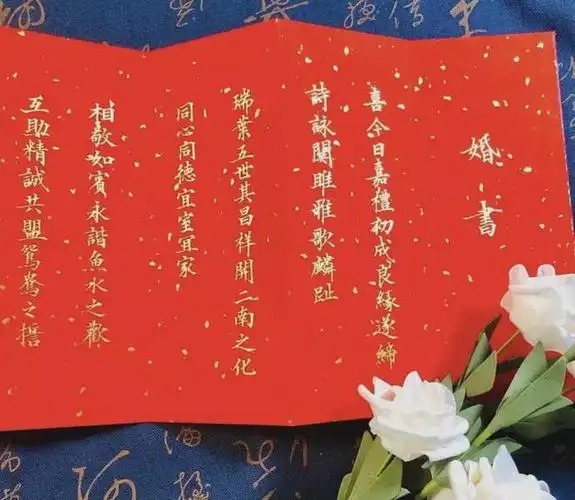 婚書
喜今日嘉禮初成良緣遂締
詩詠關雎雅歌麟趾
瑞葉五世其昌祥開二南之化
同心同德宜室宜家
相敬如賓永諧魚水之歡
互助精誠共盟鴛鴦之誓